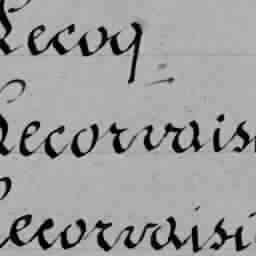 Lecoq
Lecorvais
Lecorvaisi